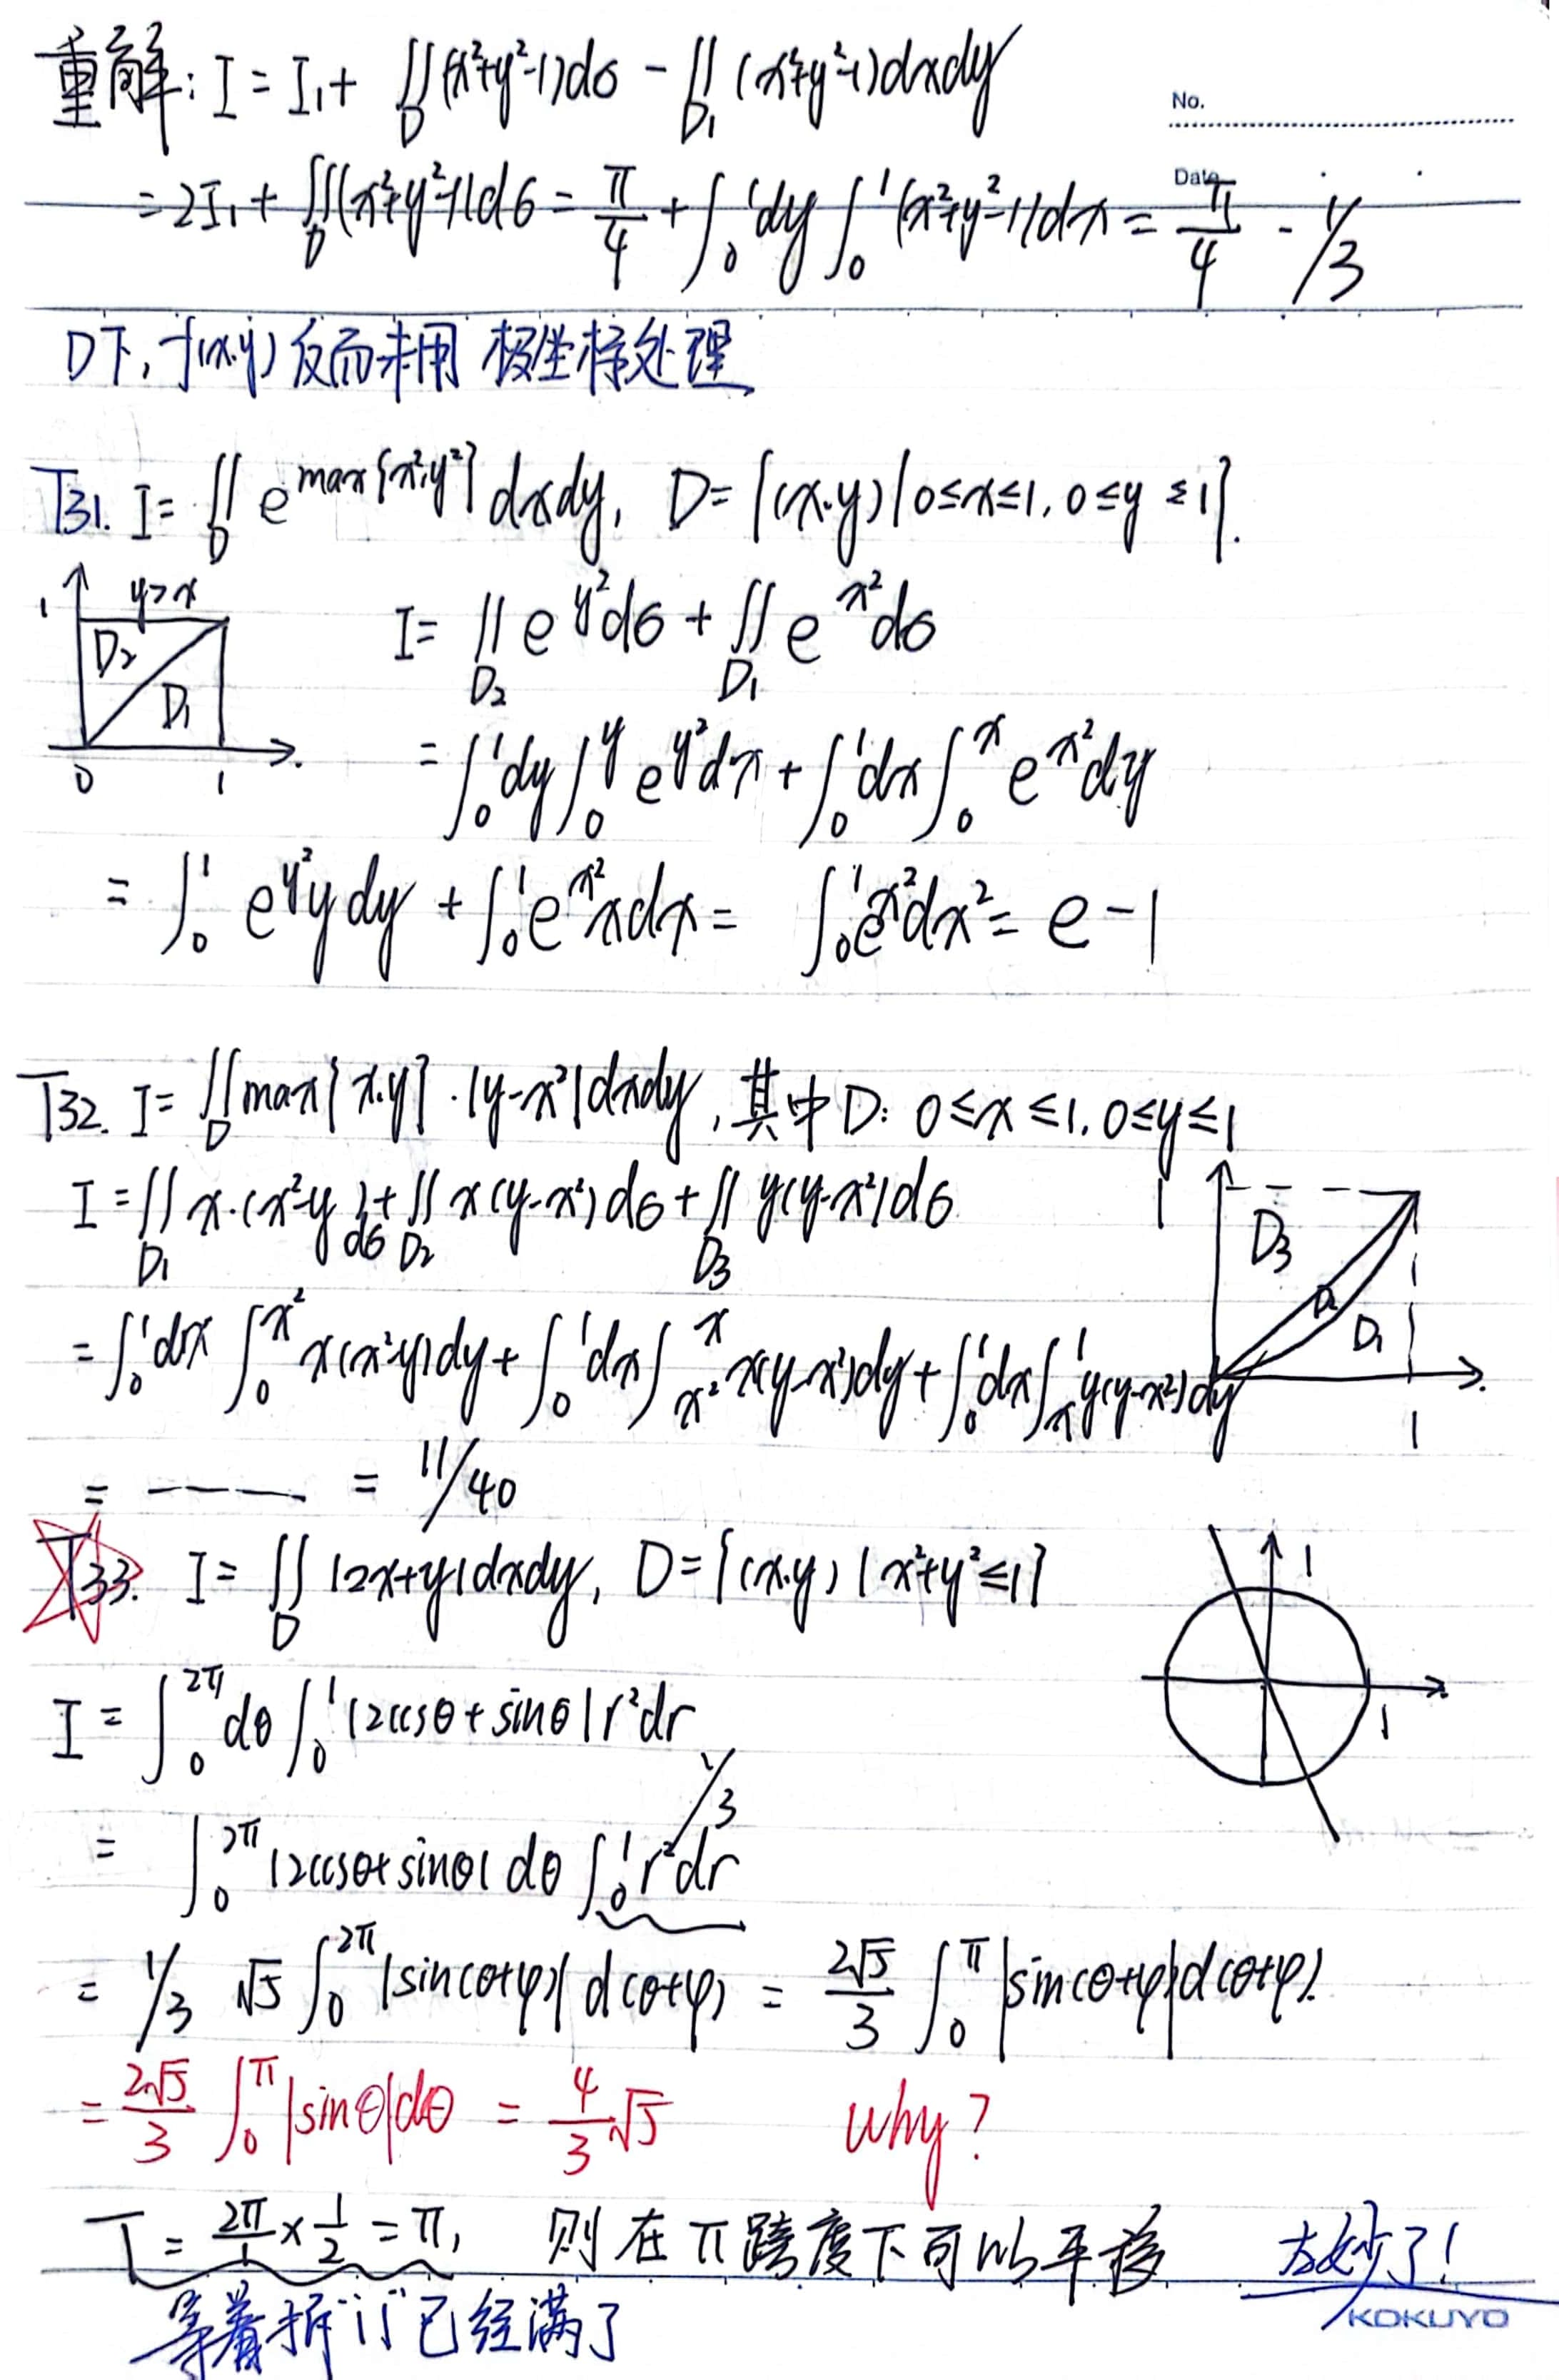 重解: I = I₁ + ∬_D (x²+y²-1)dσ - ∬_D₁ (x²+y²-1)dxdy
No.
Date
= 2I₁ + ∬_D (x²+y²-1)dσ = π/4 + ∫₀¹dy∫₀¹(x²+y²-1)dx = π/4 - 1/3
D下, f(x.y) 反而未用 极坐标处理
T31. I = ∬_D e^{max{x²,y²}} dxdy, D = {(x.y) | 0≤x≤1, 0≤y≤1}.
1 y>x
D₂
D₁
0 1
I = ∬_D₂ e^{y²}dσ + ∬_D₁ e^{x²}dσ
= ∫₀¹dy∫₀^y e^{y²}dx + ∫₀¹dx∫₀^x e^{x²}dy
= ∫₀¹ e^{y²}y dy + ∫₀¹ e^{x²}x dx = ∫₀¹ e^{x²}dx² = e-1
T32. I = ∬_D max{x.y}·|y-x²|dxdy, 其中D: 0≤x≤1, 0≤y≤1
I = ∬_D₁ x·(x²-y)dσ + ∬_D₂ x(y-x²)dσ + ∬_D₃ y(y-x²)dσ
1
D₃
D₂
D₁
1
= ∫₀¹dx∫₀^{x²} x(x²-y)dy + ∫₀¹dx∫_{x²}^x x(y-x²)dy + ∫₀¹dx∫_x^1 y(y-x²)dy
= ———— = 11/40
T33. I = ∬_D |2x+y|dxdy, D = {(x.y) | x²+y²≤1}
1
1
I = ∫₀^{2π}dθ∫₀¹|2cosθ+sinθ|r²dr
1/3
= ∫₀^{2π}|2cosθ+sinθ|dθ∫₀¹r²dr
= 1/3 √5 ∫₀^{2π}|sin(θ+φ)|d(θ+φ) = 2√5/3 ∫₀^π|sin(θ+φ)|d(θ+φ).
= 2√5/3 ∫₀^π|sinθ|dθ = 4/3 √5 why?
T = 2π/1 × 1/2 = π, 则在π跨度下可以平移 太妙了!
等着拆"| |"已经满了
KOKUYO